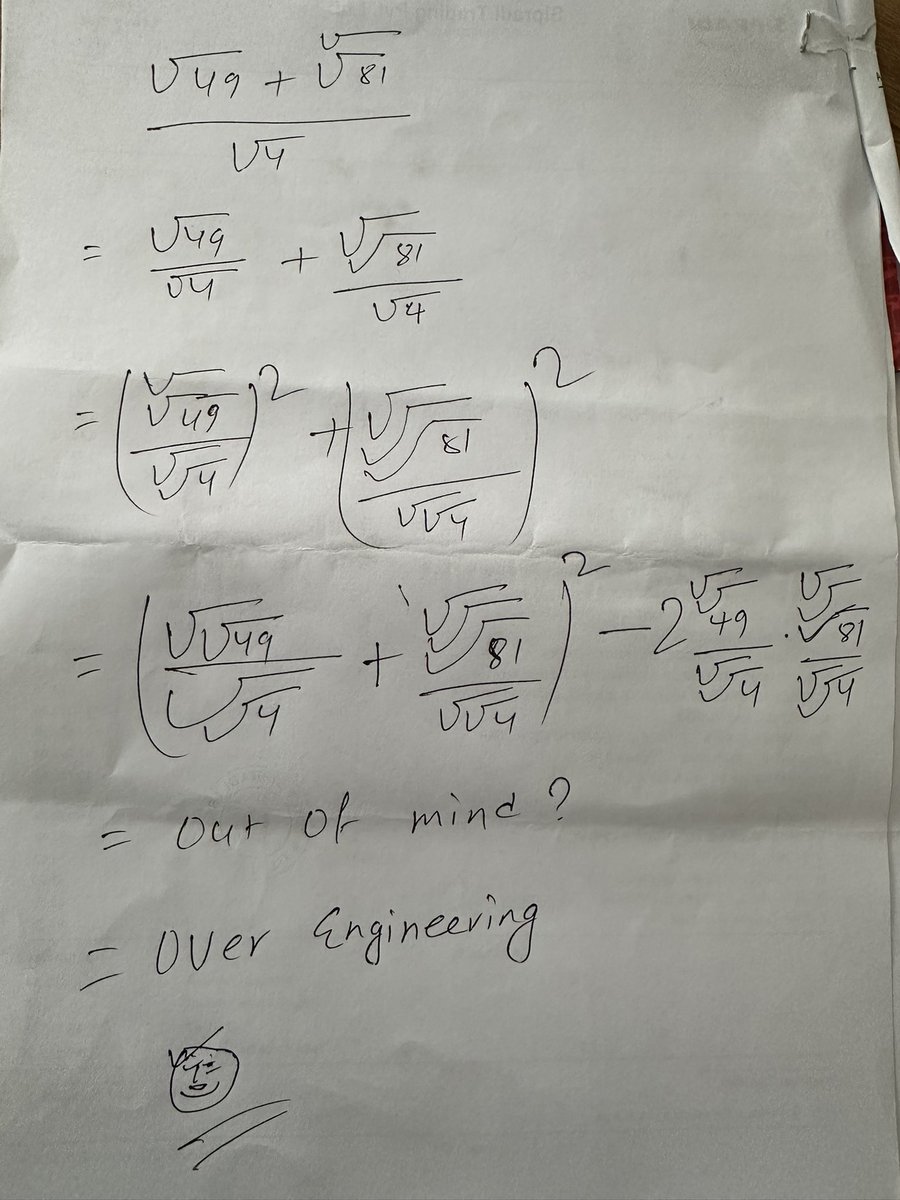 (√49 + √√81) / √4
= √49/√4 + √√81/√4
= (√√49/√√4)² + (√√√81/√√4)²
= (√√49/√√4 + √√√81/√√4)² - 2 √√49/√√4 · √√√81/√√4
= Out Of mind?
= Over Engineering